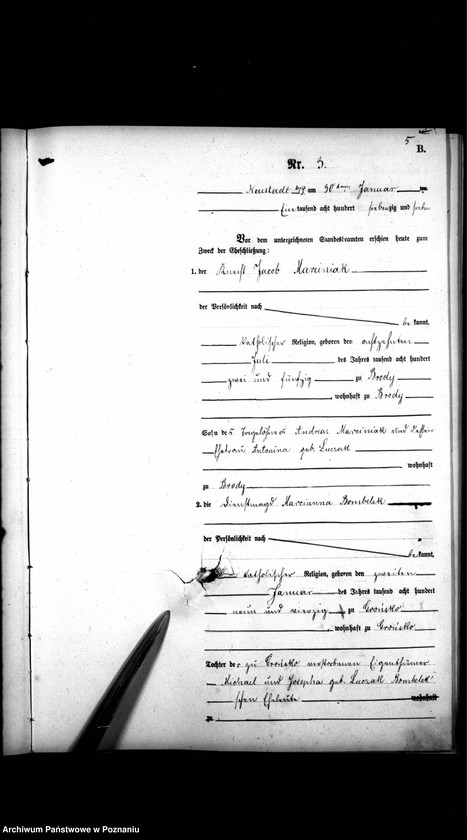 5
B.
Nr. 3.
Neustadt b/P am 30ten Januar
Ein tausend acht hundert siebenzig und sechs
Vor dem unterzeichneten Standesbeamten erschien heute zum
Zweck der Eheschließung:
1. der Knecht Jacob Marciniak
der Persönlichkeit nach
be kannt,
katholischer Religion, geboren den achtzehnten
Juli des Jahres tausend acht hundert
zwei und fünfzig zu Brody
, wohnhaft zu Brody
Sohn des Tagelöhners Andreas Marciniak und dessen
Ehefrau Antonina geb. Luczak
wohnhaft
zu Brody
2. die Dienstmagd Marcianna Bombelek
der Persönlichkeit nach
be kannt,
katholischer Religion, geboren den zweiten
Januar des Jahres tausend acht hundert
neun und vierzig zu Grońsko
, wohnhaft zu Grońsko
Tochter der zu Grońsko verstorbenen Eigenthümer
Michael und Josepha geb. Luczak Bombelek'
schen Eheleute wohnhaft
zu
Archiwum Państwowe w Poznaniu